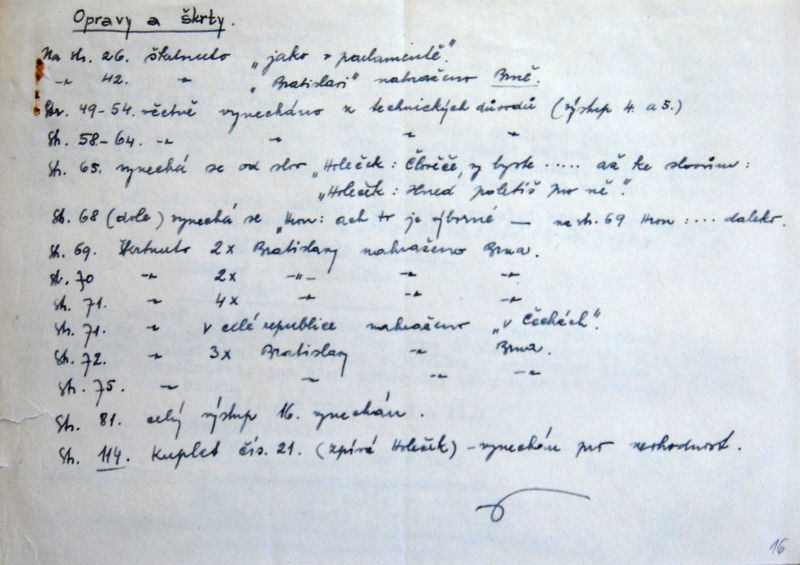 Opravy a škrty.
Na str. 26. škrtnuto „jako v parlamentě".
-"- 42. -"- „Bratislavě" nahraženo Brně.
Str. 49-54. včetně vynecháno z technických důvodů (výstup 4. a 5.)
Str. 58-64. -"- -"- -"- -"-
Str. 65. vynechá se od slov „Holeček: Člověče, vy byste ..... až ke slovům:
„Holeček: Hned poletíš pro ně".
Str. 68 (dole) vynechá se „Hron: ach to je výborné — na str. 69 Hron: ... daleko.
Str. 69. Škrtnuto 2x Bratislavy nahraženo Brna.
Str. 70 -"- 2x -"- -"- -"-
Str. 71. -"- 4x -"- -"-
Str. 71. -"- v celé republice nahraženo „v Čechách".
Str. 72. -"- 3x Bratislavy -"- Brna.
Str. 75. -"- -"- -"- -"-
Str. 81. celý výstup 16. vynechán.
Str. 114. Kuplet čís. 21. (zpívá Holeček) - vynechán pro nevhodnost.
16